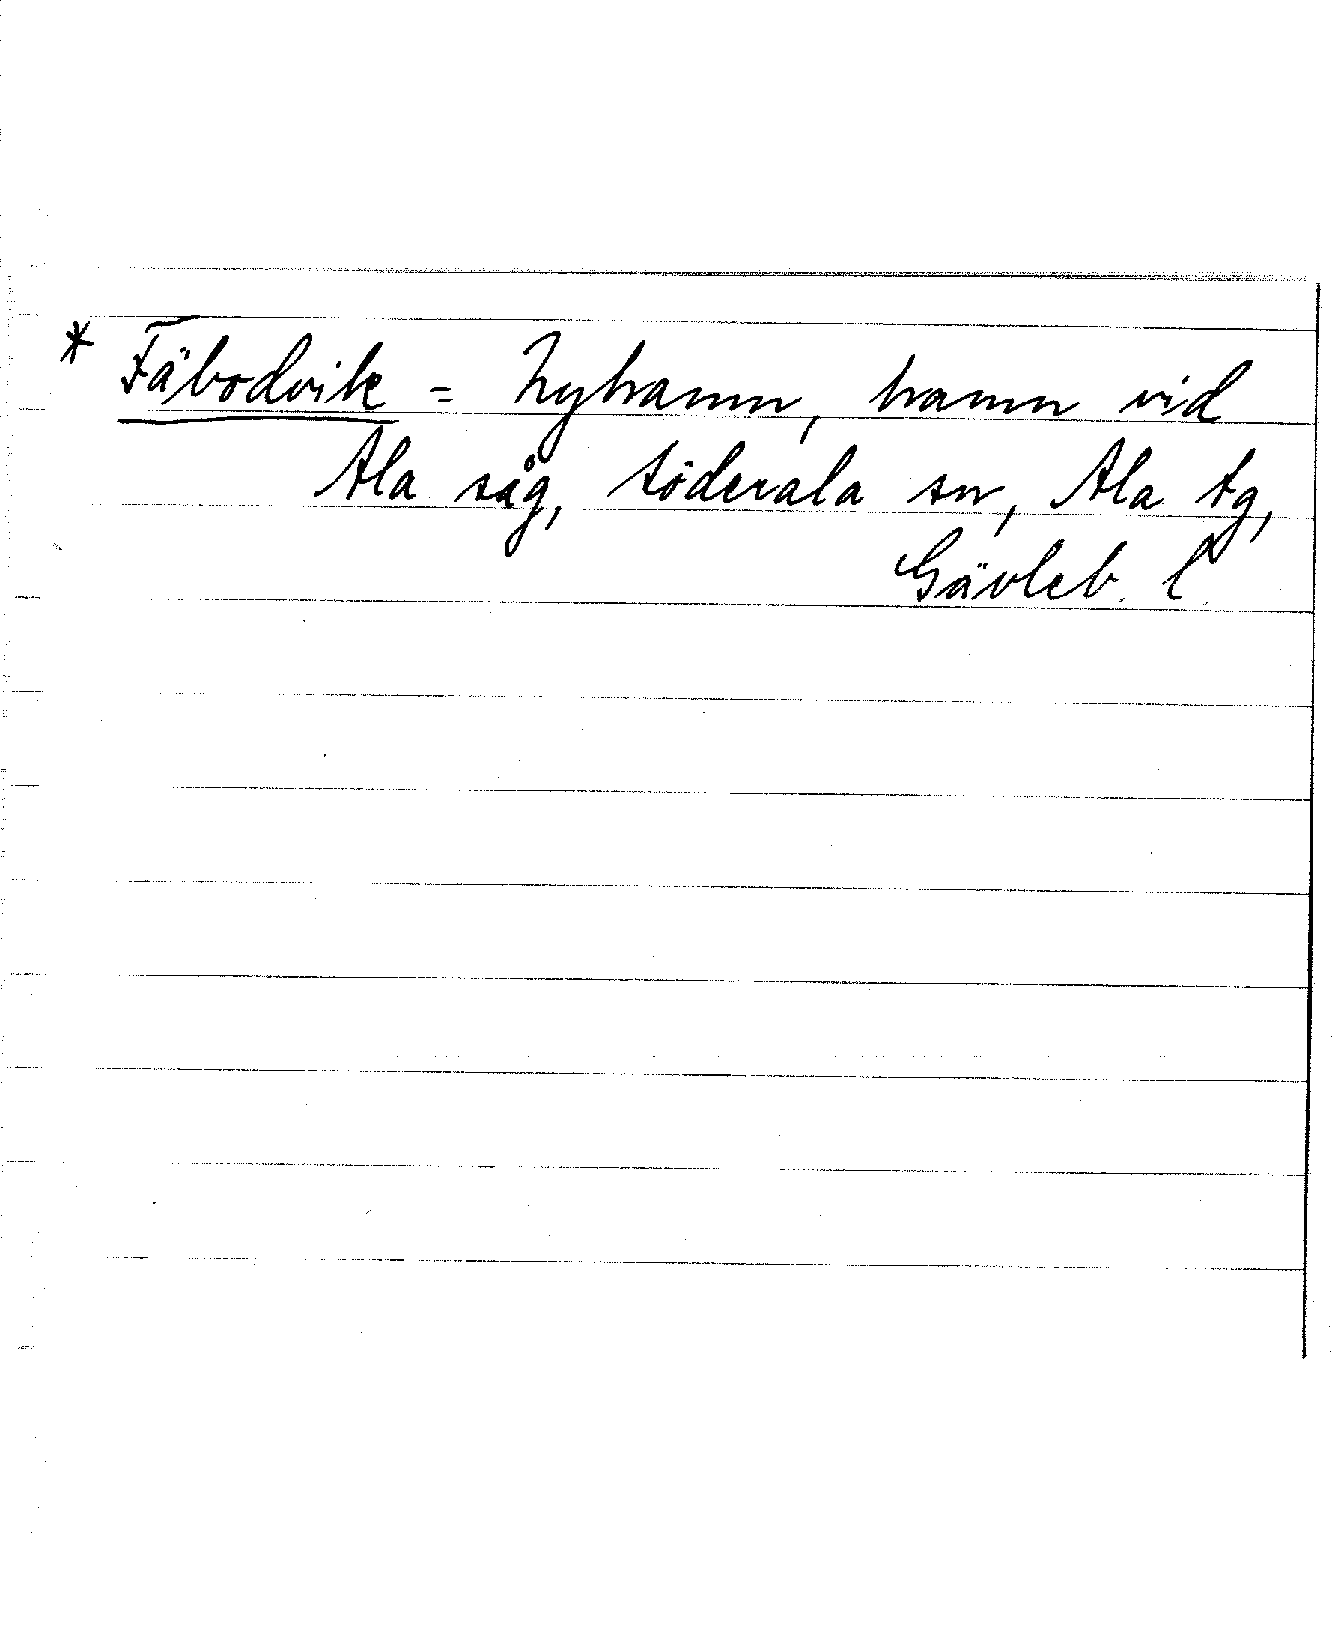 * Fäbodvik = Nyhamn, hamn vid
Ala såg, Söderala sn, Ala tg,
Gävleb. l.